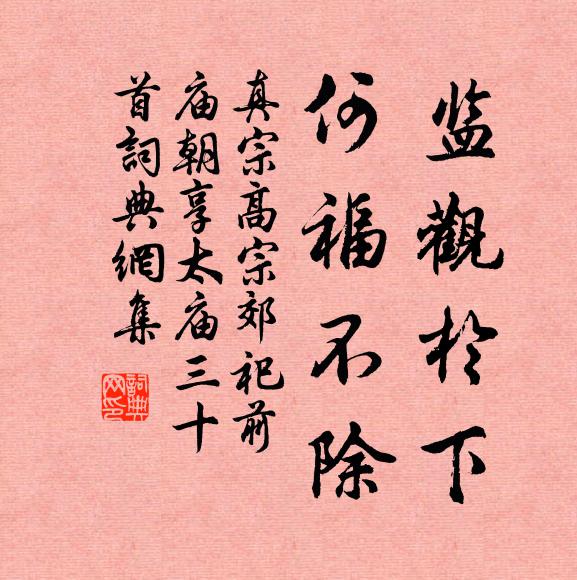 监觀於下
何福不除
真宗高宗郊祀前
庙朝享太庙三十
首詞典網集
詞典
网印